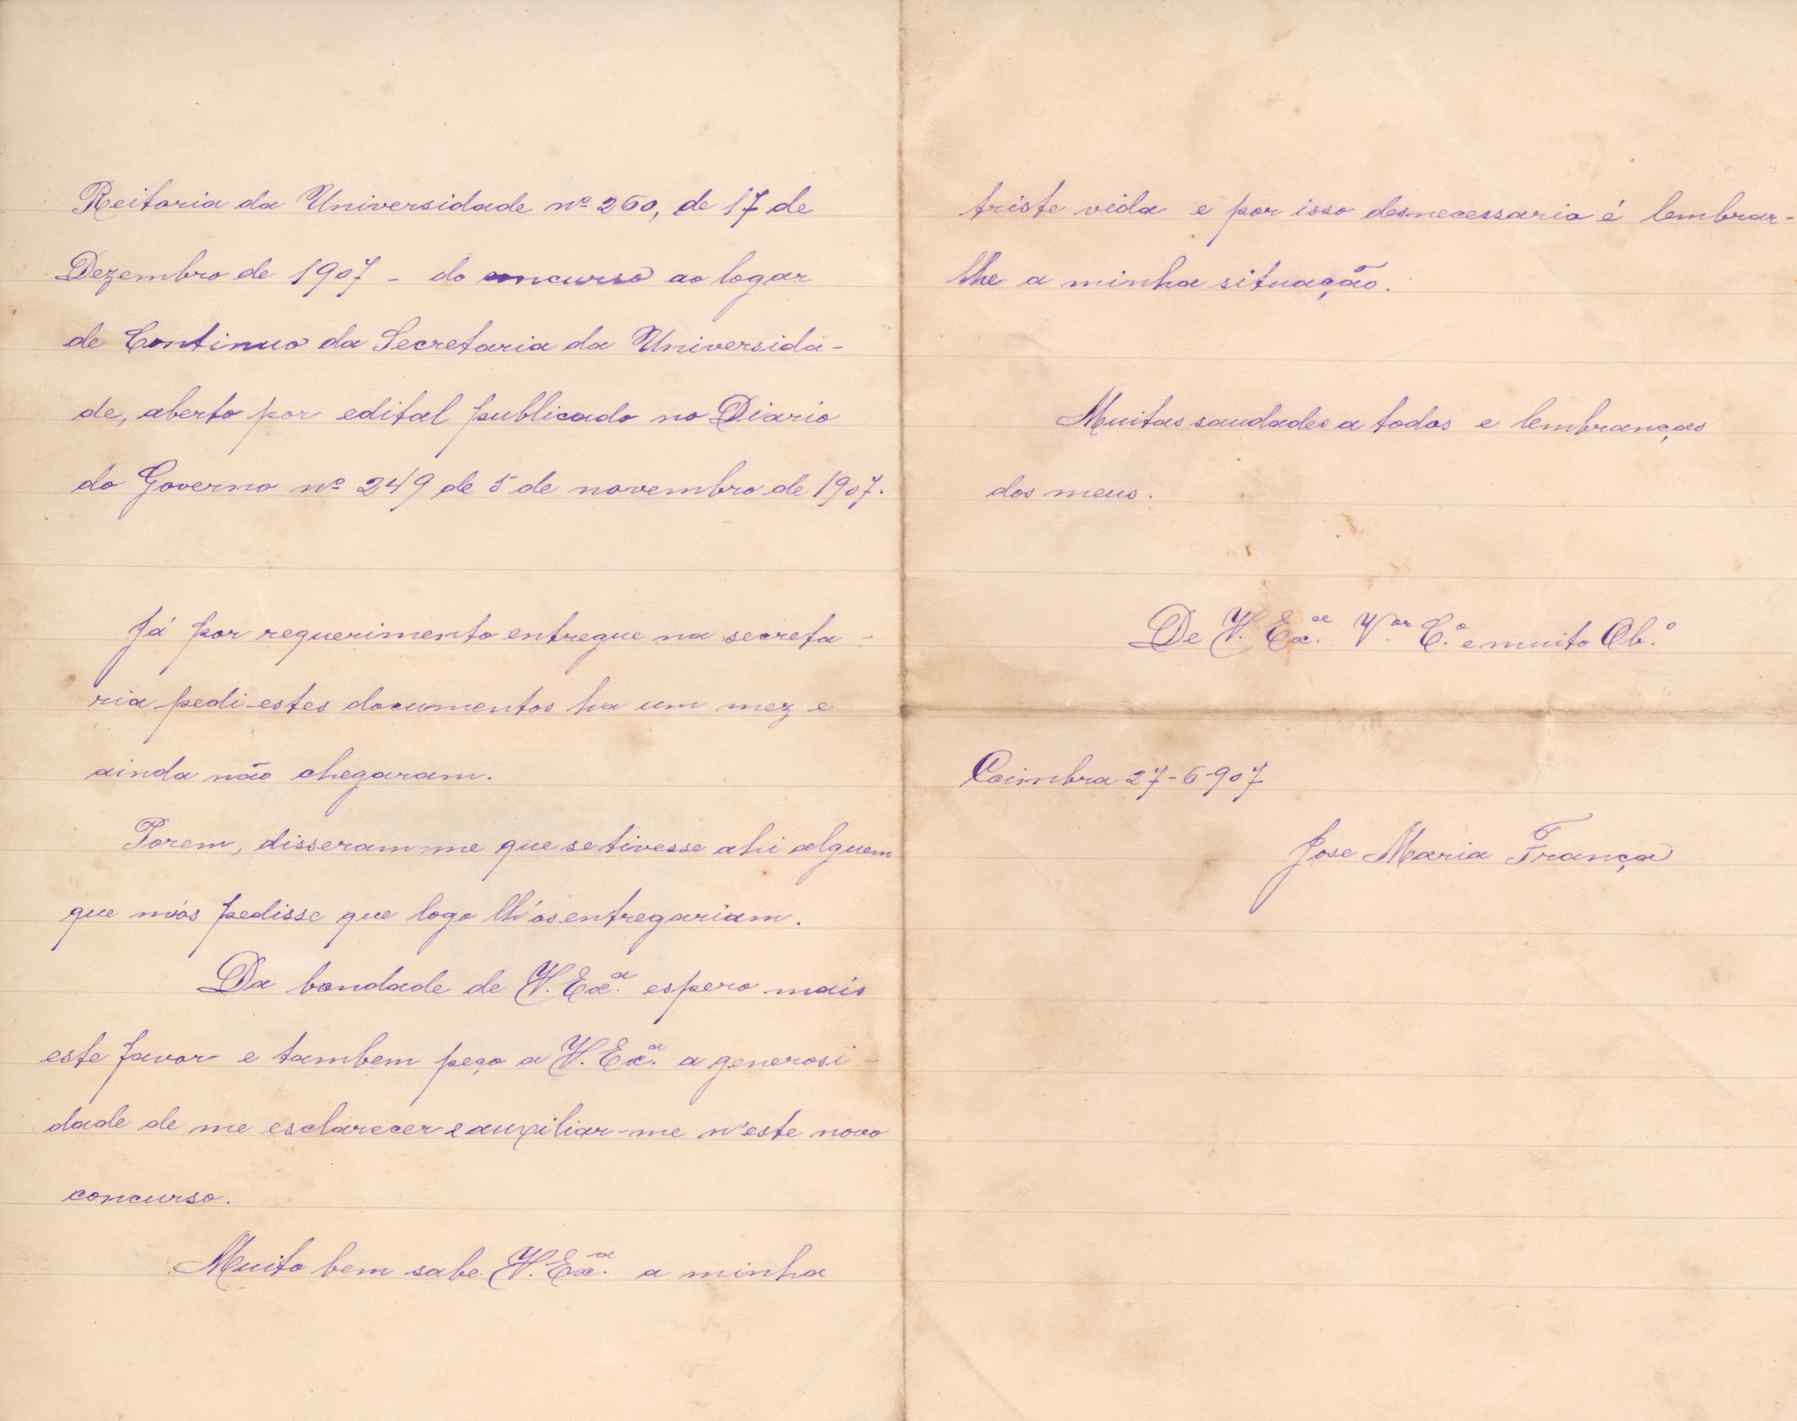 Reitoria da Universidade nº 260, de 17 de
Dezembro de 1907 - do concurso ao logar
de Continuo da Secretaria da Universida-
de, aberto por edital publicado no Diario
do Governo nº 249 de 5 de novembro de 1907.
Já por requerimento entregue na secreta-
ria pedi estes documentos ha um mez e
ainda não chegaram.
Porem, disseram-me que se tivesse ahi alguem
que m'os pedisse que logo lh'os entregariam.
Da bondade de V. Exª. espero mais
este favor e tambem peço a V. Exª. a generosi-
dade de me esclarecer e auxiliar-me n'este novo
concurso.
Muito bem sabe V. Exª. a minha
triste vida e por isso desnecessario é lembrar-
lhe a minha situação.
Muitas saudades a todos e lembranças
dos meus.
De V. Exª. V.ºr C.º e muito Ob.º
Coimbra 27-6-907
Jose Maria França